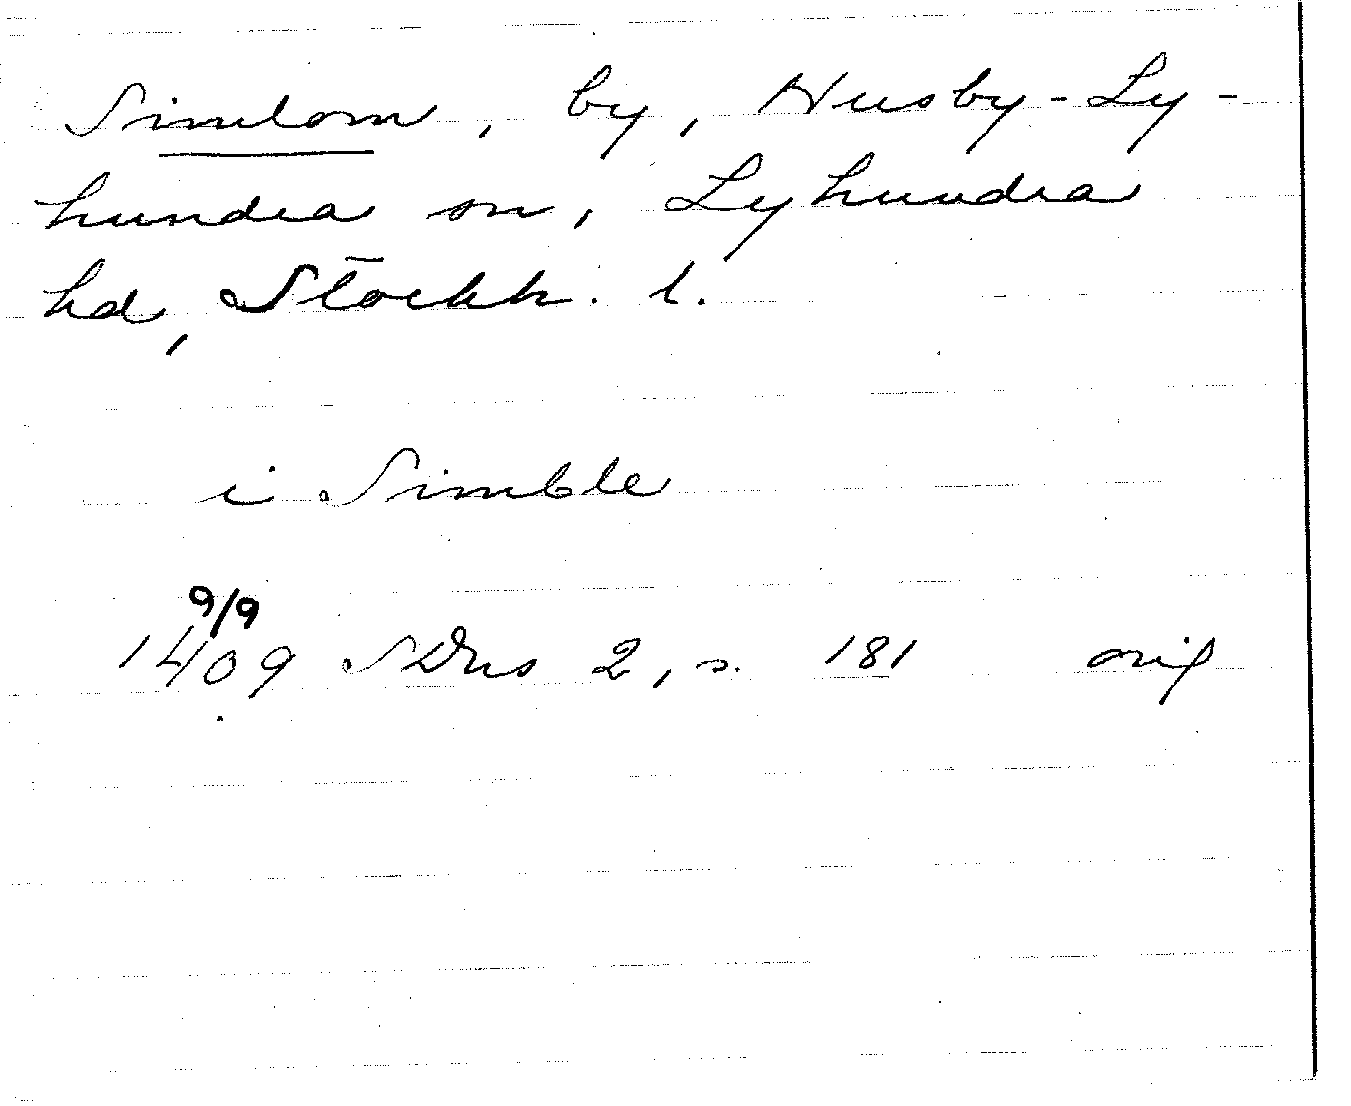 Simlom, by, Husby-Ly-
hundra sn, Lyhundra
hd, Stockh. l.
i Simble
9/9
1409 SDns 2, s. 181 orig